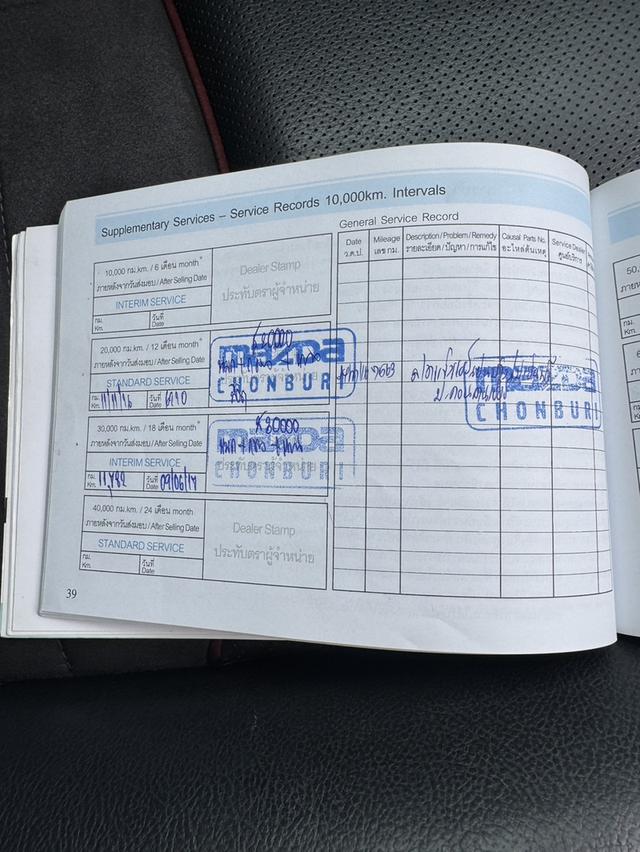 Supplementary Services – Service Records 10,000km. Intervals
10,000 กม.km. / 6 เดือน month*
ภายหลังจากวันส่งมอบ / After Selling Date
INTERIM SERVICE
กม.
Km.
วันที่
Date
Dealer Stamp
ประทับตราผู้จำหน่าย
20,000 กม.km. / 12 เดือน month*
ภายหลังจากวันส่งมอบ / After Selling Date
STANDARD SERVICE
กม.
Km.
วันที่
Date
20000
mazda
CHONBURI
30,000 กม.km. / 18 เดือน month*
ภายหลังจากวันส่งมอบ / After Selling Date
INTERIM SERVICE
กม.
Km.
วันที่
Date 09/06/17
30000
mazda
ประทับตราผู้จำหน่าย
CHONBURI
40,000 กม.km. / 24 เดือน month*
ภายหลังจากวันส่งมอบ / After Selling Date
STANDARD SERVICE
กม.
Km.
วันที่
Date
Dealer Stamp
ประทับตราผู้จำหน่าย
39
General Service Record
Date
ว.ด.ป.
Mileage
เลข กม.
Description / Problem / Remedy
รายละเอียด / ปัญหา / การแก้ไข
Causal Parts No.
อะไหล่ต้นเหตุ
Service Dealer
ศูนย์บริการ
mazda
CHONBURI